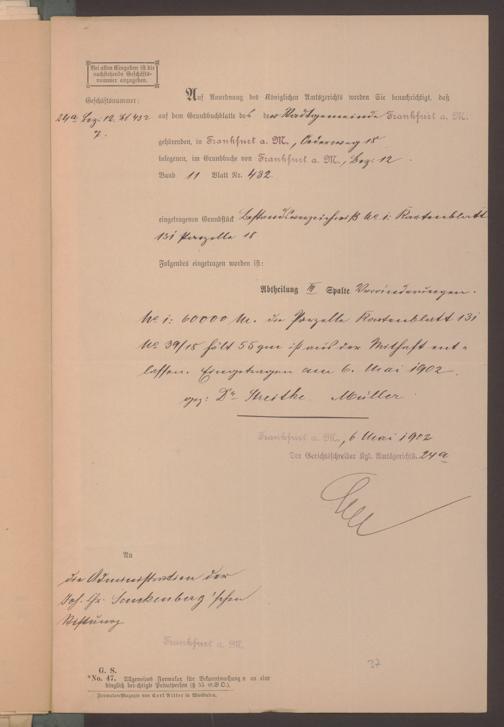 Bei allen Eingaben ist die
nachstehende Geschäfts-
nummer anzugeben.
Geschäftsnummer:
24a Bez. 12. Bl 432
7.
Auf Anordnung des Königlichen Amtsgerichts werden Sie benachrichtigt, daß
auf dem Grundbuchblatte des der Stadtgemeinde Frankfurt a. M.
gehörenden, in Frankfurt a. M., Oederweg 18
belegenen, im Grundbuche von Frankfurt a. M., Bez. 12
Band 11 Blatt Nr. 432
eingetragenen Grundstück Bestandsverzeichniß No 1: Kartenblatt
131 Parzelle 18
Folgendes eingetragen worden ist:
Abtheilung III Spalte Veränderungen.
No 1: 60000 M. die Parzelle Kartenblatt 131
No 39/18 hält 55 qm ist aus der Mithaft ent-
lassen. Eingetragen am 6. Mai 1902.
gez: Dr Müller
Frankfurt a. M., 6 Mai 1902
Der Gerichtsschreiber Kgl. Amtsgerichts. 24a
An
die Administration der
Joh. Chr. Senckenberg'schen
Stiftung
Frankfurt a. M.
37
G. S.
*No. 47. Allgemeines Formular für Bekanntmachungen an eine
dinglich berechtigte Privatperson (§ 55 G.B.O.).
Formular-Magazin von Carl Ritter in Wiesbaden.